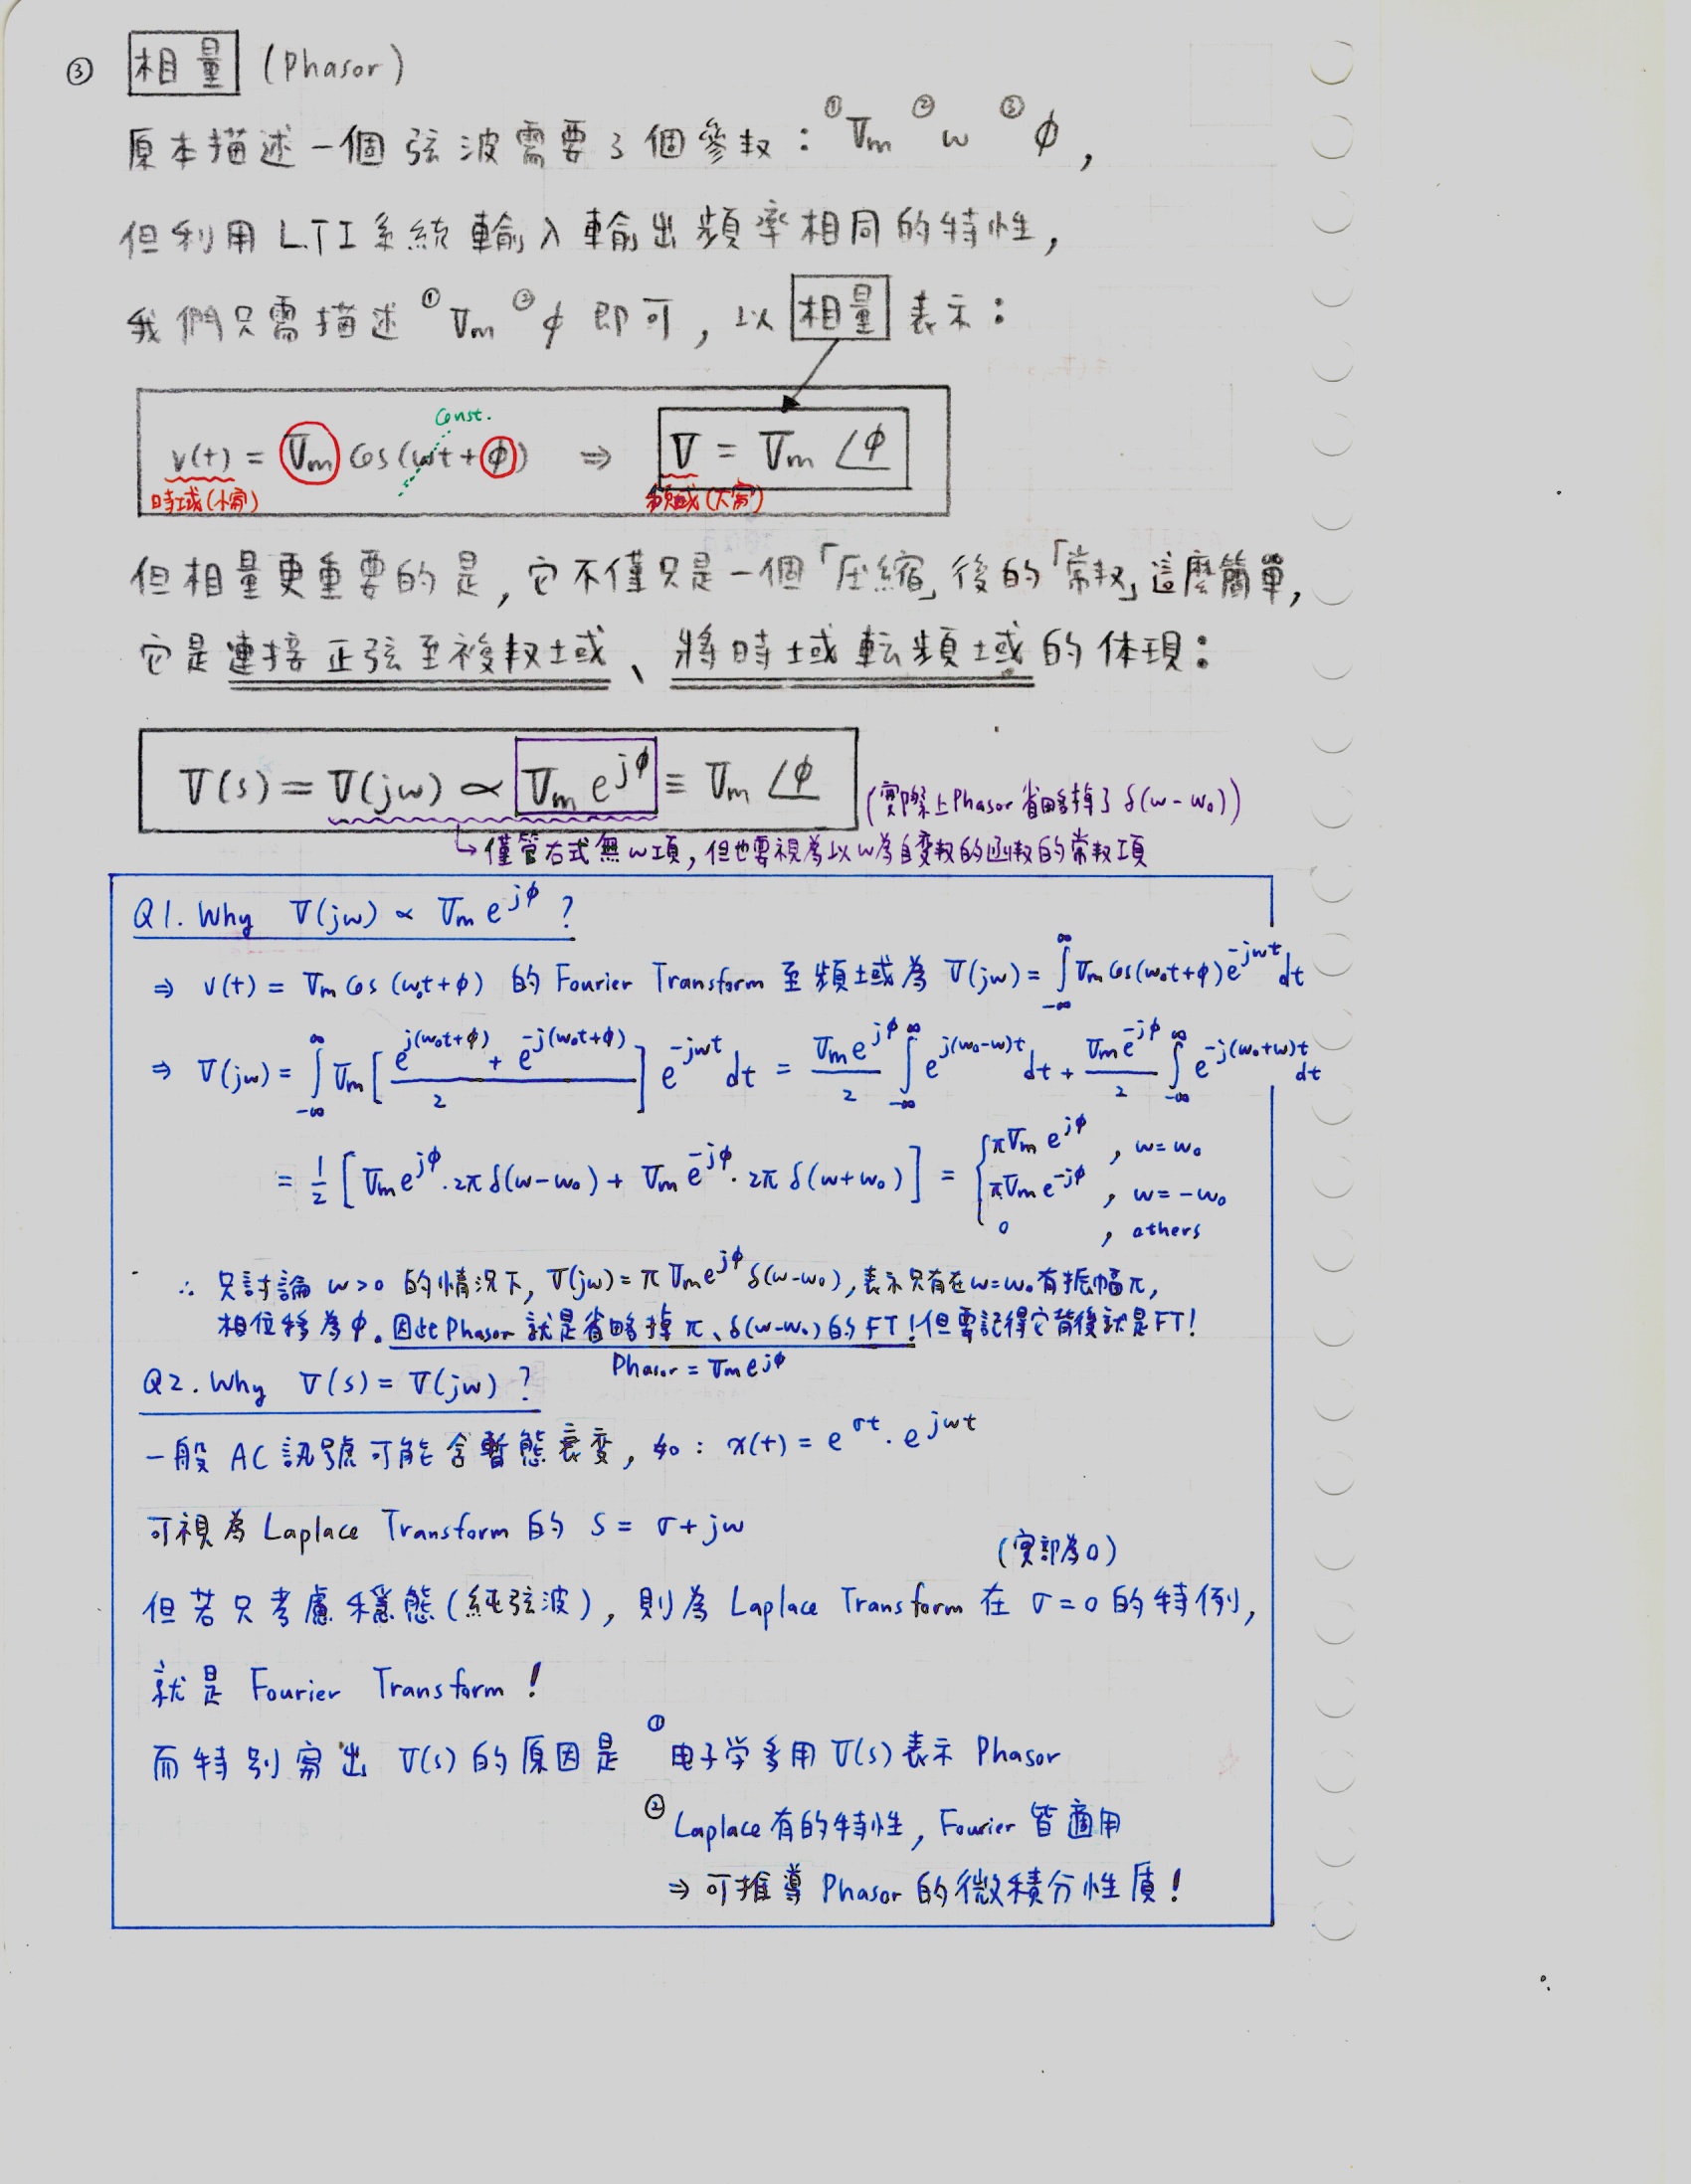 ③ 相量 (Phasor)
原本描述一個弦波需要3個參数：①Vm ②ω ③φ，
但利用LTI系統輸入輸出頻率相同的特性，
我們只需描述 ①Vm ②φ 即可，以 相量 表示：
Const.
v(t) = Vm Cos(ωt+φ) ⇒ V = Vm ∠φ
時域(小寫) 頻域(大寫)
但相量更重要的是，它不僅只是一個「压縮」後的「常数」這麼簡單，
它是連接正弦至複数域、將時域転頻域的体現：
V(s) = V(jω) ∝ Vm e^{jφ} ≡ Vm ∠φ (實際上Phasor省略掉了 δ(ω-ω₀))
↳ 僅管右式無ω項，但也要視為以ω為自变数的函数的常数項
Q1. Why V(jω) ∝ Vm e^{jφ} ?
⇒ v(t) = Vm Cos(ω₀t+φ) 的 Fourier Transform 至頻域為 V(jω) = ∫_{-∞}^{∞} Vm Cos(ω₀t+φ) e^{-jωt} dt
⇒ V(jω) = ∫_{-∞}^{∞} Vm [ (e^{j(ω₀t+φ)} + e^{-j(ω₀t+φ)}) / 2 ] e^{-jωt} dt = (Vm e^{jφ} / 2) ∫_{-∞}^{∞} e^{j(ω₀-ω)t} dt + (Vm e^{-jφ} / 2) ∫_{-∞}^{∞} e^{-j(ω₀+ω)t} dt
= 1/2 [ Vm e^{jφ}·2π δ(ω-ω₀) + Vm e^{-jφ}·2π δ(ω+ω₀) ] = { πVm e^{jφ} , ω=ω₀
πVm e^{-jφ} , ω=-ω₀
0 , others
∴ 只討論 ω>0 的情況下，V(jω) = π Vm e^{jφ} δ(ω-ω₀)，表示只有在ω=ω₀有振幅π，
相位移為φ。因此Phasor就是省略掉 π、δ(ω-ω₀)的FT！但要記得它背後就是FT！
Phasor = Vm e^{jφ}
Q2. Why V(s) = V(jω) ?
一般 AC 訊號可能含暫態衰变，如：x(t) = e^{σt}·e^{jωt}
可視為 Laplace Transform 的 S = σ+jω
(實部為0)
但若只考慮穩態(純弦波)，則為 Laplace Transform 在 σ=0 的特例，
就是 Fourier Transform！
而特別寫出 V(s) 的原因是 ① 电子学多用 V(s) 表示 Phasor
② Laplace 有的特性，Fourier 皆適用
⇒ 可推導 Phasor 的微積分性质！